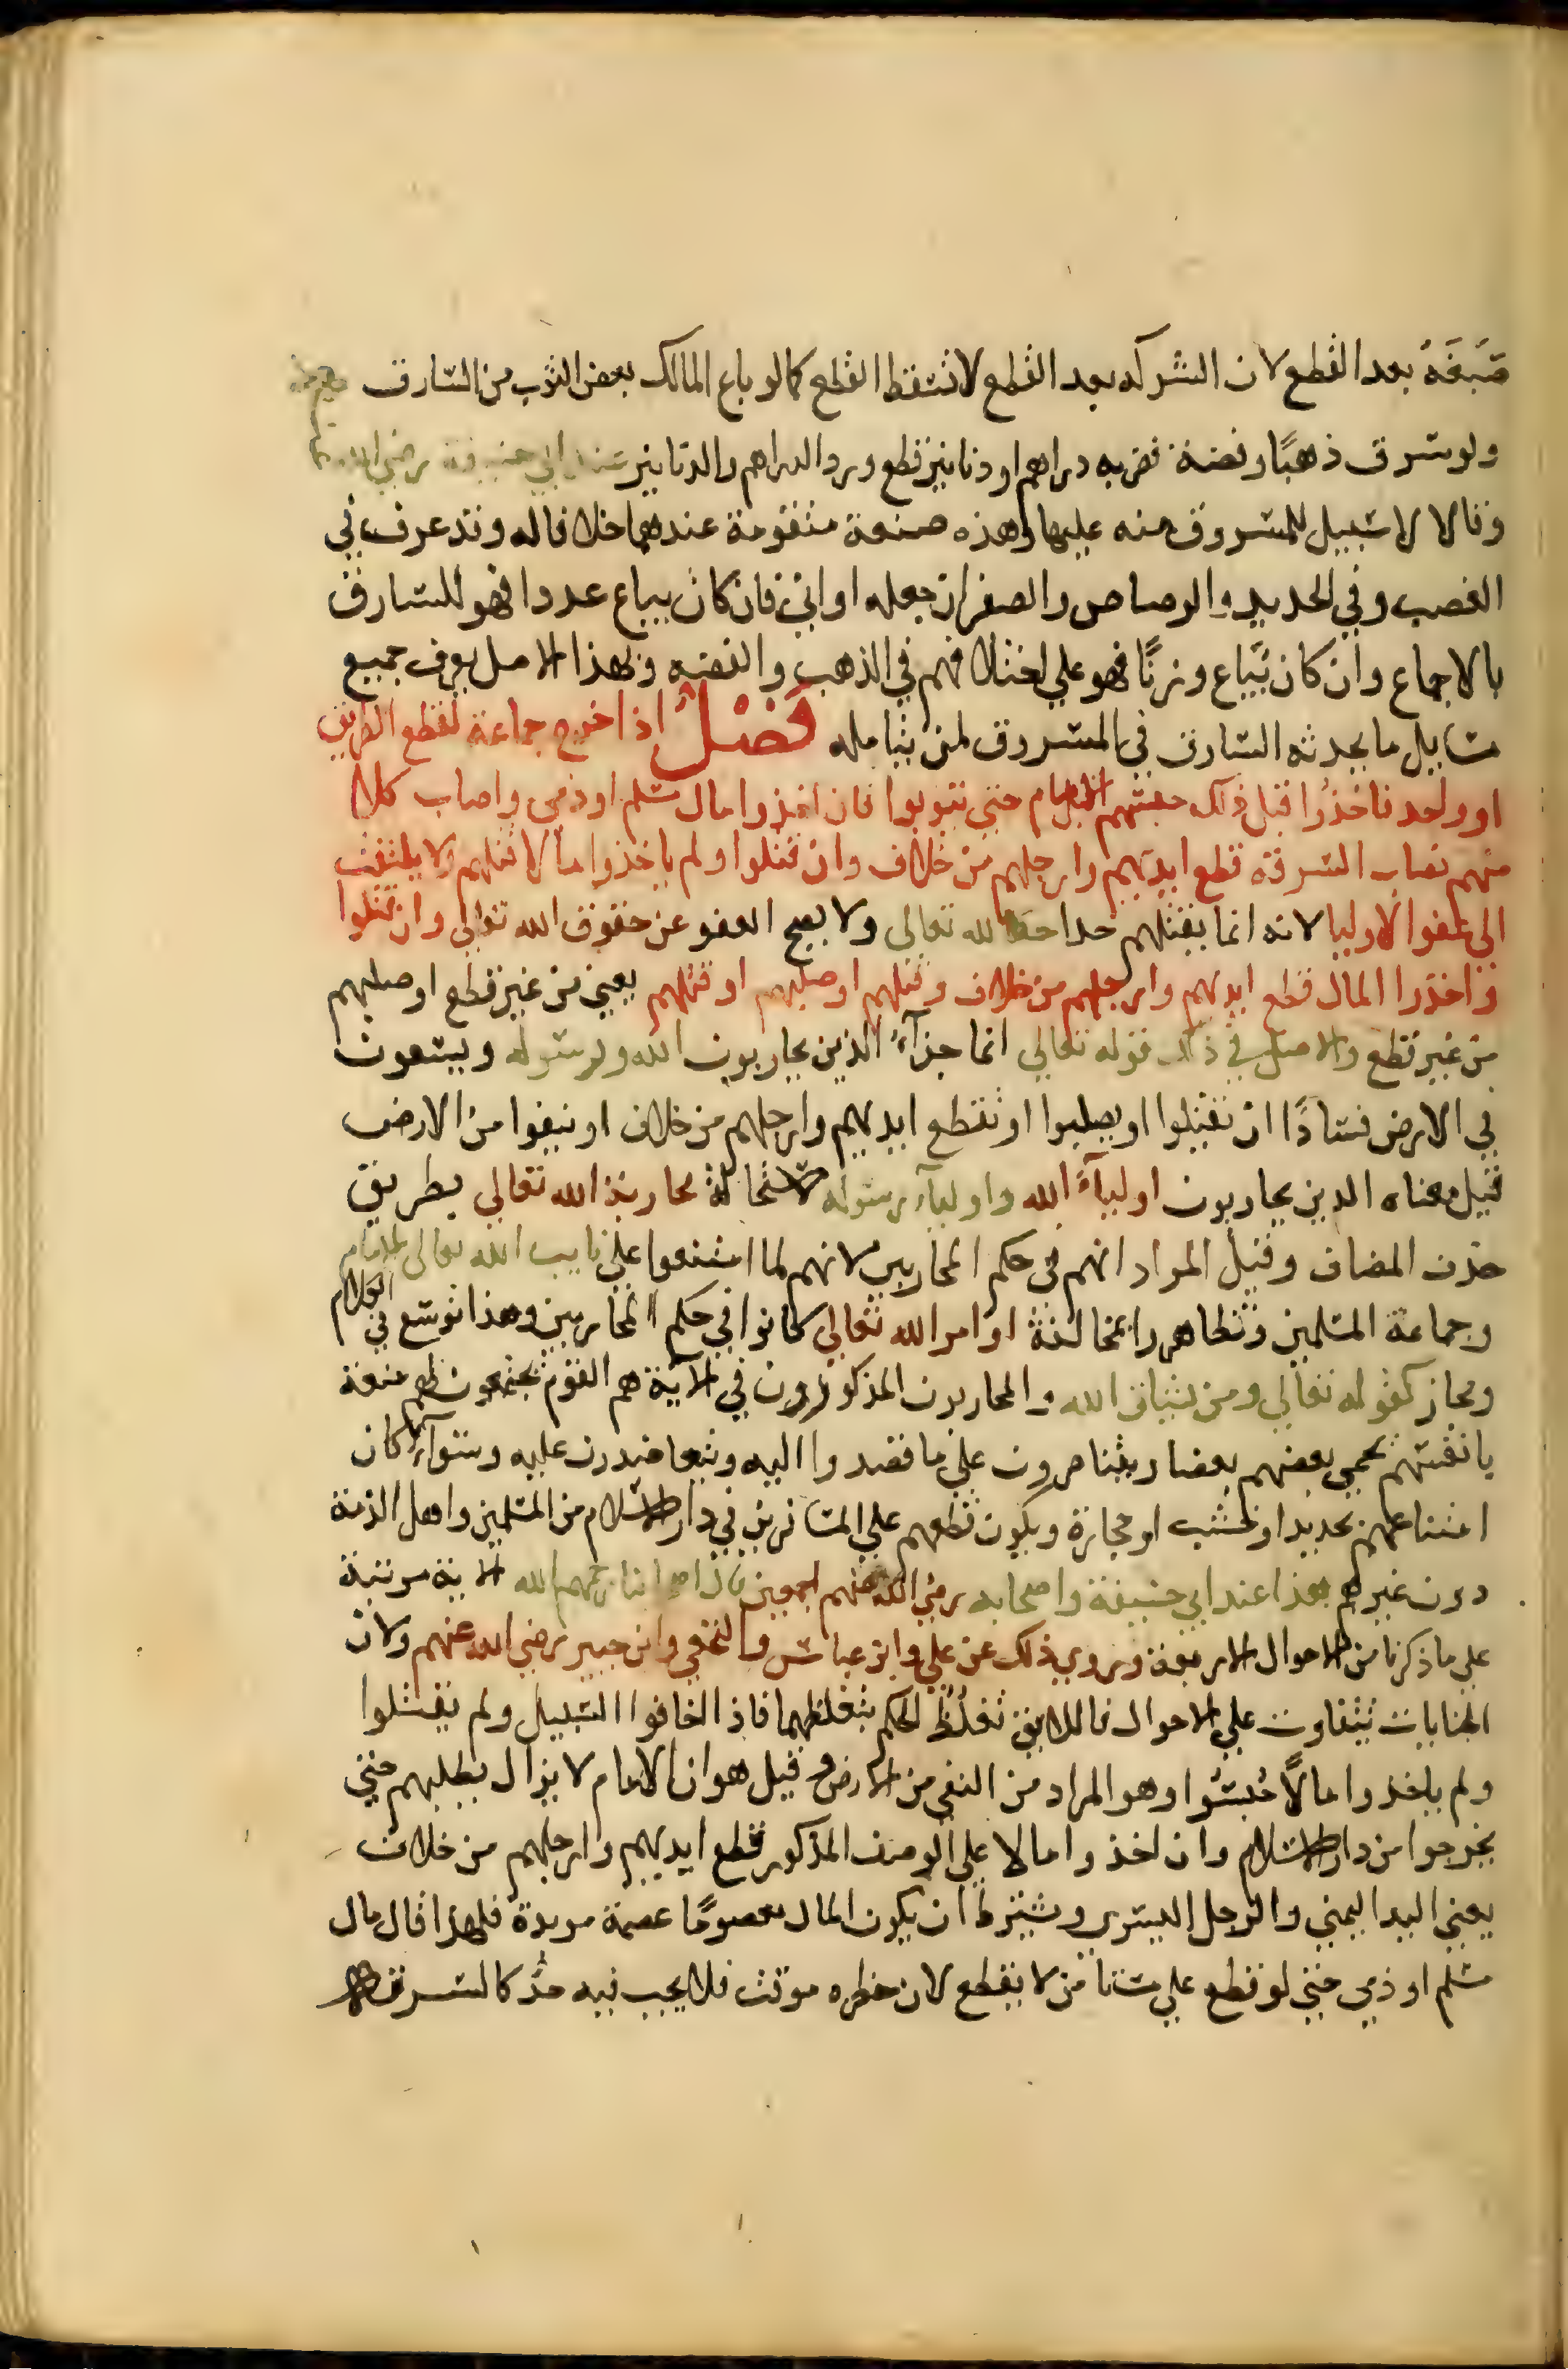 صَبَغَهُ بعد القطع لان الشركه بعد القطع لا تسقط القطع كما لو باع المالك بعض الثوب من السارق
ولو سرق ذهبًا او فضة فضربه دراهم او دنانير قطع ورد الدراهم والدنانير عند ابي حنيفة رضي الله
وقالا لا سبيل للمسروق منه عليها وهذه صنعة متقومة عندهما خلافا له وقد عرف في
الغصب وفي الحديد والرصاص والصفر ان جعله اواني فان كان يباع عددا فهو للسارق
بالاجماع وان كان يُباع وزنًا فهو علي اختلافهم في الذهب والفضه وبهذا الاصل يعرف جميع
مسايل ما يحدثه السارق في المسروق لمن يتامله فَصْلٌ اذا خرج جماعة لقطع الطريق
او واحد فاخذُوا قبل ذلك حبسهم الامام حتي يتوبوا فان اخذوا مال مسلم او ذمي واصاب كلا
منهم نصاب السرقه قطع ايديهم وارجلهم من خلاف وان قتلوا ولم ياخذوا مالا قتلهم ولا يلتفت
الي عفوا الاوليا لانه انما يقتلهم حدا حقا لله تعالي ولا يصح العفو عن حقوق الله تعالي وان قتلوا
واخذوا المال قطع ايديهم وارجلهم من خلاف وقتلهم او صلبهم او قتلهم يعني من غير قطع او صلبهم
من غير قطع والاصل في ذلك قوله تعالي انما جزآءُ الذين يحاربون الله ورسوله ويسعون
في الارض فسادًا ان يقتلوا او يصلبوا او تقطع ايديهم وارجلهم من خلاف او ينفوا من الارض
قيل معناه الذين يحاربون اوليآءَ الله واوليآء رسوله لاستحالة محاربة الله تعالي بطريق
حذف المضاف وقيل المراد انهم في حكم المحاربين لانهم لما امتنعوا علي نايب الله تعالي الامام
وجماعة المسلمين وتظاهروا بمخالفة اوامر الله تعالي كانوا في حكم المحاربين وهذا توسع في الكلام
ومجاز كقوله تعالي ومن يشاق الله والمحاربون المذكورون في الاية هم القوم يجتمعون لهم منعة
بانفسهم يحمي بعضهم بعضا ويتناصرون علي ما قصدوا اليه ويتعاضدون عليه وسوآء كان
امتناعهم بحديد او خشب او حجارة ويكون قطعهم علي المسافرين في دار الاسلام من المسلمين واهل الذمة
دون غيرهم هذا عند ابي حنيفة واصحابه رضي الله عنهم اجمعين قال اصحابنا رحمهم الله الاية مرتبة
علي ما ذكرنا من الاحوال الاربعة وروي ذلك عن علي وابن عباس والنخعي وابن جبير رضي الله عنهم ولان
الجنايات تتفاوت علي الاحوال فاللايق تغلُّظُ الحكم بتغلظهما فاذا اخافوا السبيل ولم يقتلوا
ولم ياخذوا مالًا حُبسُوا وهو المراد من النفي من الارض وقيل هو ان الامام لا يزال يطلبهم حتي
يخرجوا من دار الاسلام وان اخذوا مالا علي الوصف المذكور قطع ايديهم وارجلهم من خلاف
يعني اليد اليمني والرجل اليسري ويشترط ان يكون المال معصومًا عصمة موبدة فلهذا قال مال
مسلم او ذمي حتي لو قطع علي مستامن لا يقطع لان خطره موقت فلا يجب فيه حدٌّ كالسرقة